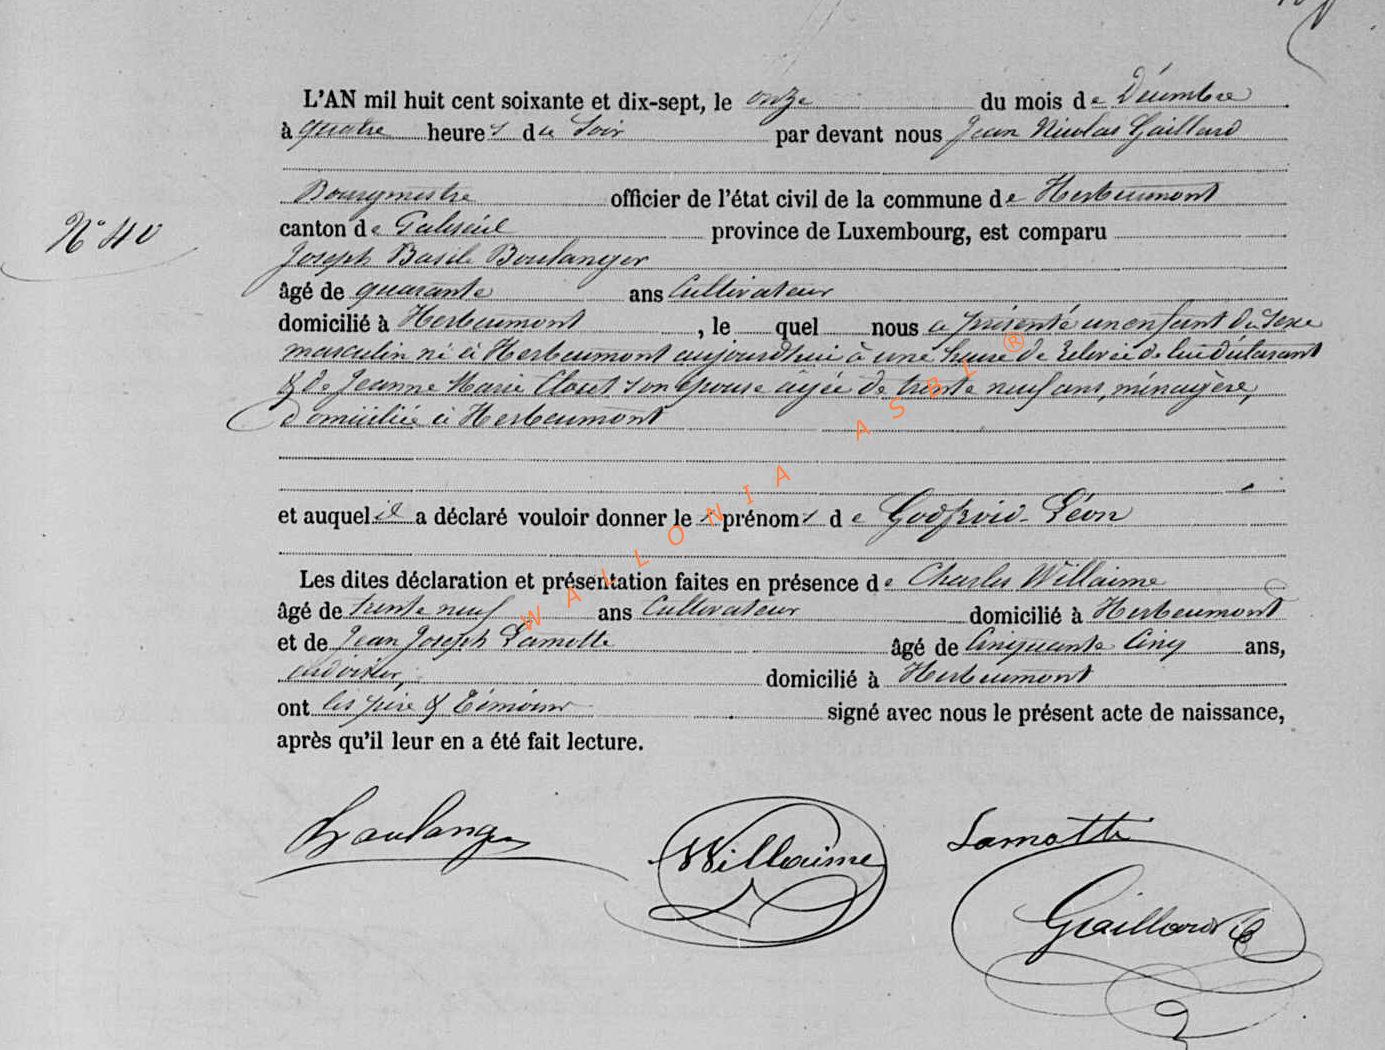 N° 40
L'AN mil huit cent soixante et dix-sept, le onze du mois de Décembre
à quatre heures du Soir par devant nous Jean Nicolas Gaillard
Bourgmestre officier de l'état civil de la commune de Herbeumont
canton de Paliseul province de Luxembourg, est comparu
Joseph Basile Boulanger
âgé de quarante ans Cultivateur
domicilié à Herbeumont, le quel nous a présenté un enfant du Sexe
masculin né à Herbeumont aujourdhui à une heure de relevée de lui déclarant
& de Jeanne Marie son épouse âgée de trente neuf ans, ménagère,
domiciliée à Herbeumont
et auquel il a déclaré vouloir donner les prénoms de Godfroid-Léon
Les dites déclaration et présentation faites en présence de Charles Willaime
âgé de trente neuf ans Cultivateur domicilié à Herbeumont
et de Jean Joseph Lamotte âgé de Cinquante Cinq ans,
ardoisier, domicilié à Herbeumont
ont les père & témoins signé avec nous le présent acte de naissance,
après qu'il leur en a été fait lecture.
Boulanger Willaime Lamotte
Gaillard
WALLONIA ASBL ®